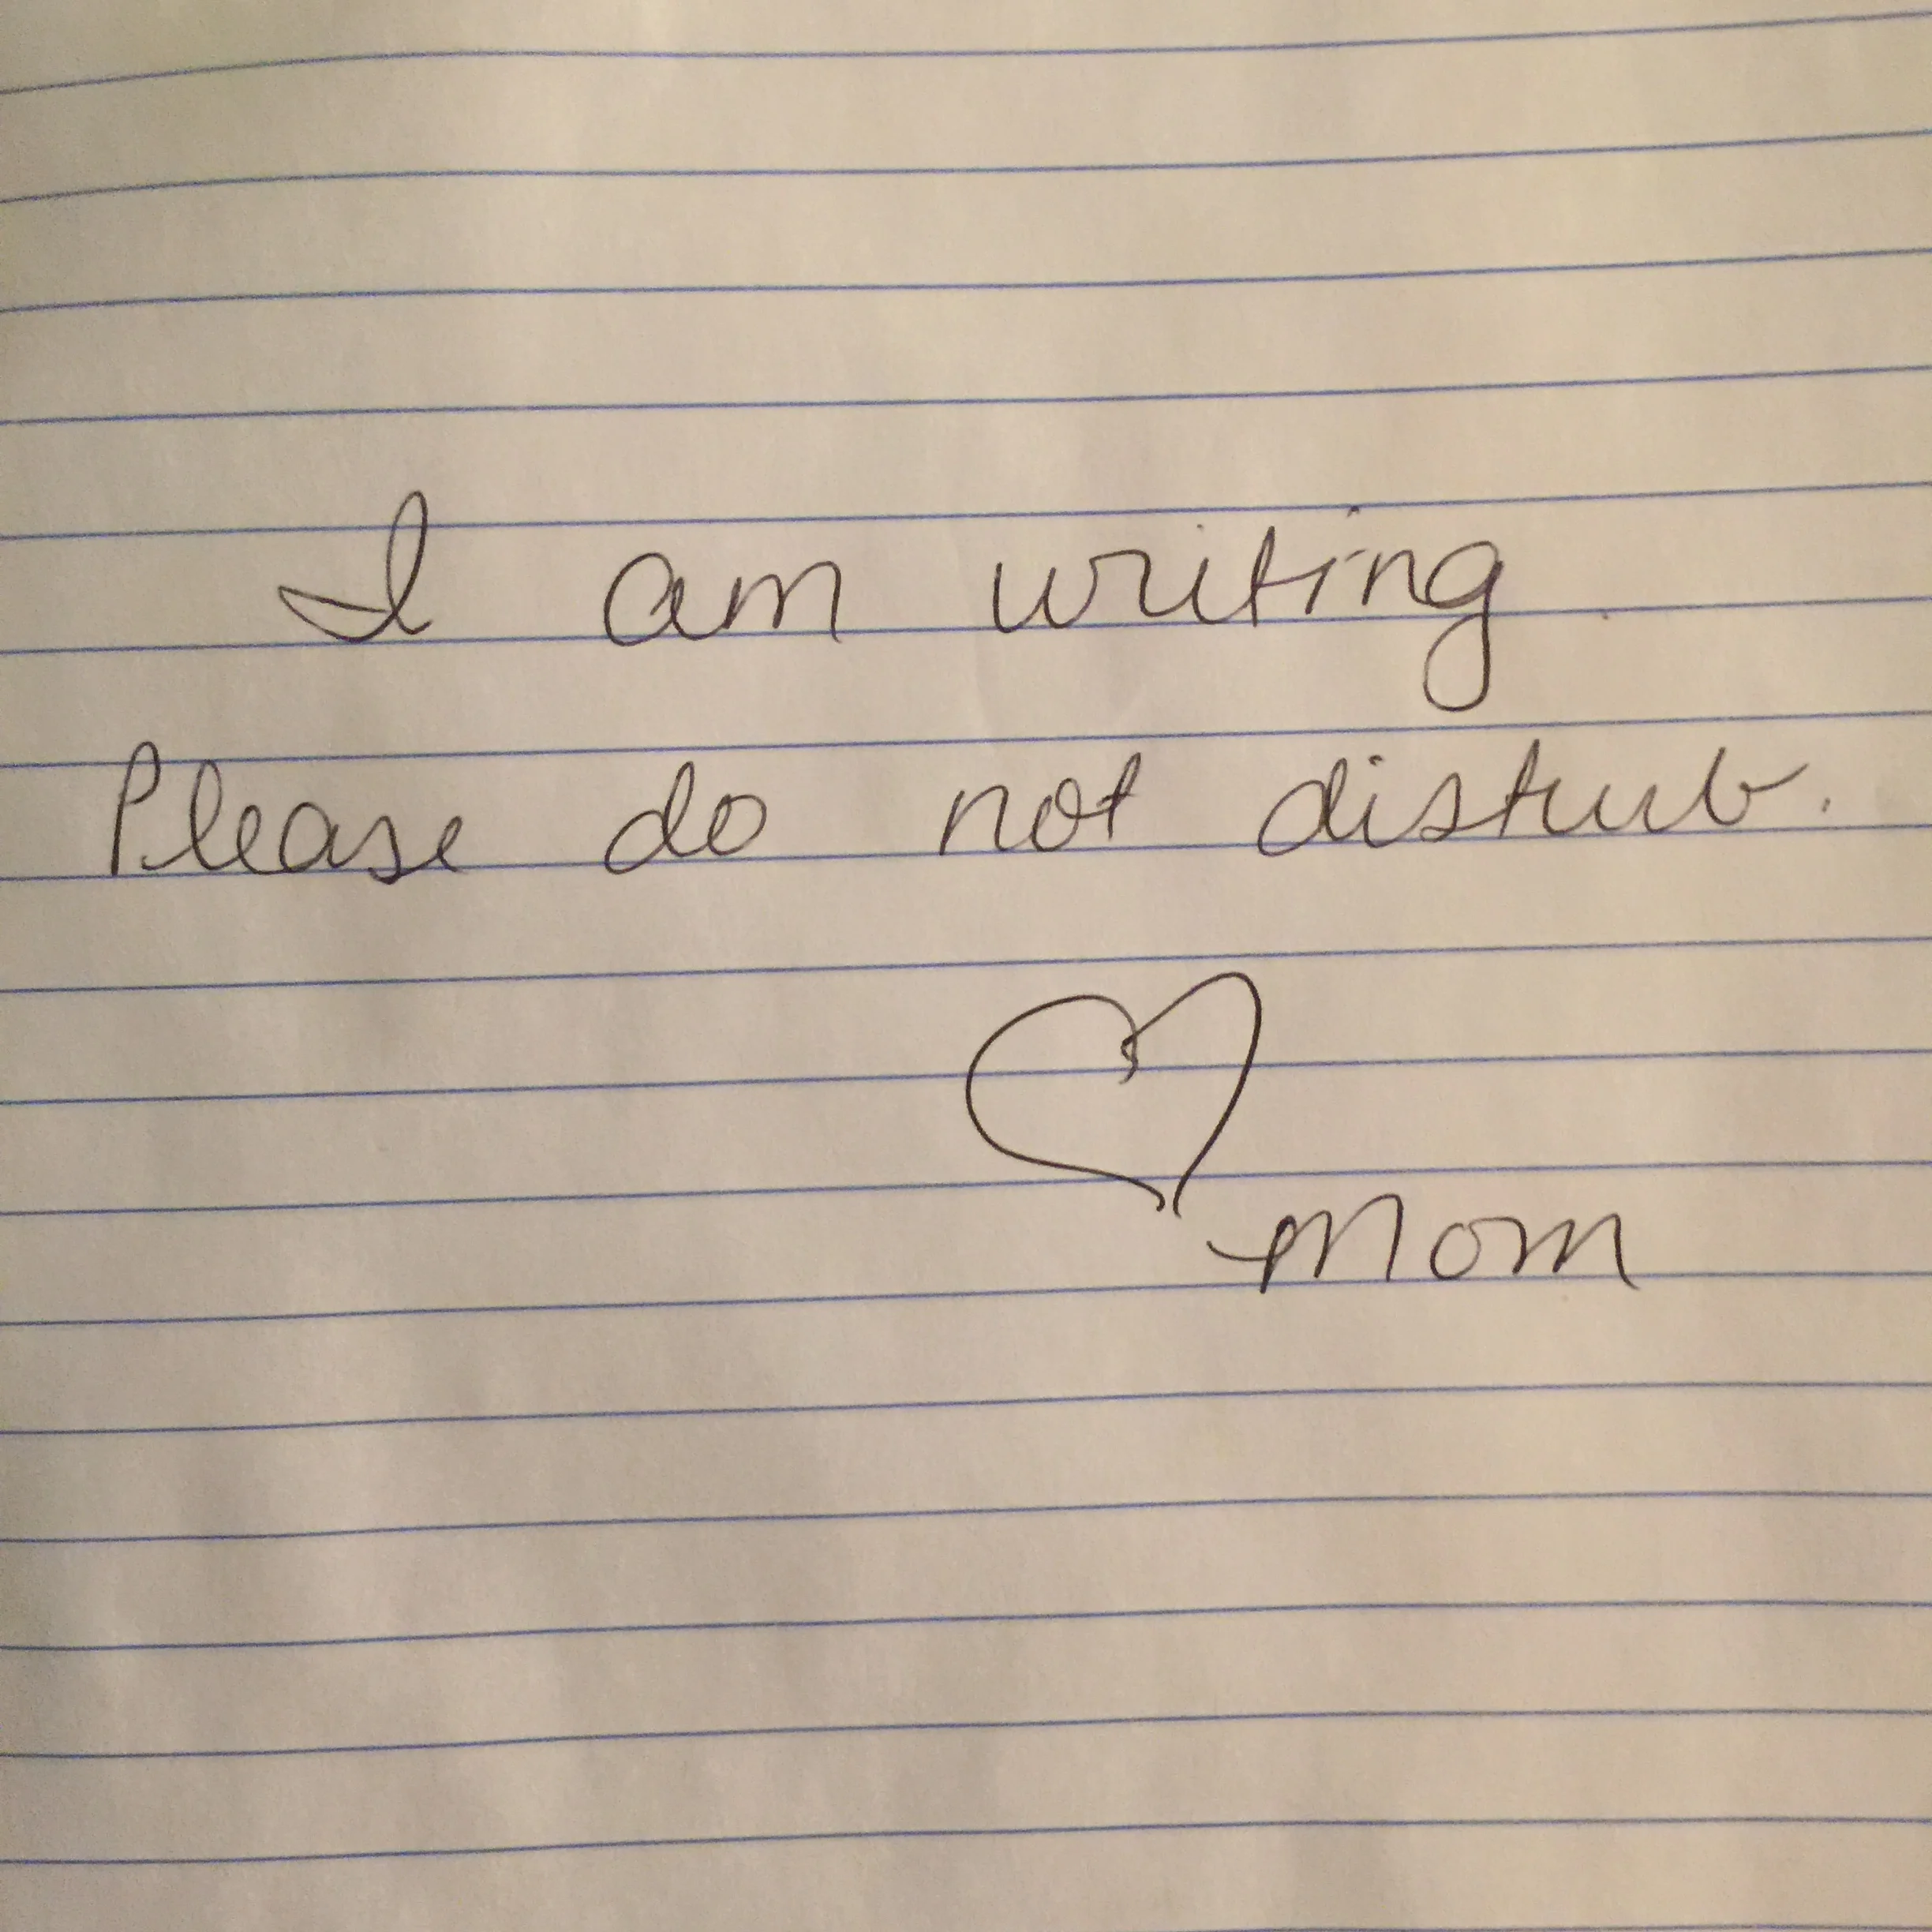 I am writing.
Please do not disturb.
Mom